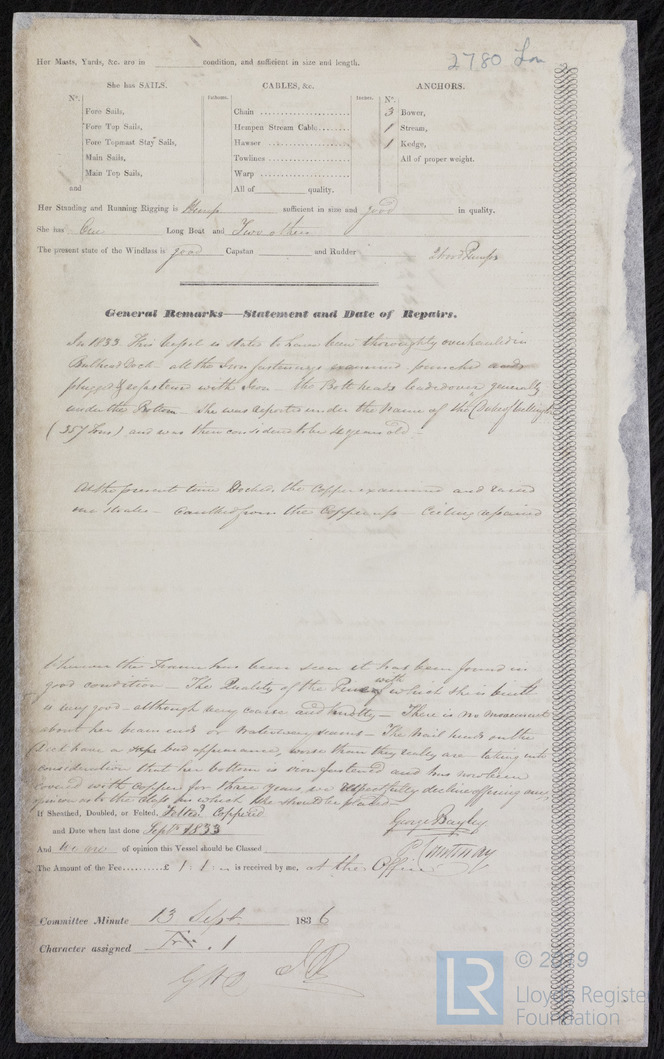 2780 Lon
Her Masts, Yards, &c. are in condition, and sufficient in size and length.
She has SAILS. CABLES, &c. ANCHORS.
N°. Fathoms. Inches. N°.
Fore Sails, Chain 3 Bower,
Fore Top Sails, Hempen Stream Cable 1 Stream,
Fore Topmast Stay Sails, Hawser 1 Kedge,
Main Sails, Towlines All of proper weight.
Main Top Sails, Warp
and All of quality.
Her Standing and Running Rigging is Hemp sufficient in size and good in quality.
She has One Long Boat and Two others
The present state of the Windlass is good Capstan and Rudder Pumps
General Remarks—Statement and Date of Repairs.
In 1833 This Vessel is stated to have been thoroughly overhauled in
Bulhead Dock - all the Iron fastenings examined punched and
plugged & refastened with Iron - the Bolt heads leaded over generally
under the Bottom - She was reported under the Name of the "Duke of Wellington
(357 Tons) and was then considered to be years old -
At the present time Docked, the Copper examined and raised
one strake - Caulked from the Copper up - Ceiling repaired
Wherever the Frame has been seen it has been found in
good condition - The Quality of the with which she is built
is very good - although very coarse and knotty - There is no movement
about her beam ends or Waterway seams - The Nail heads on the
Deck have a bad appearance, worse than they really are - taking into
consideration that her bottom is iron fastened and has now been
covered with Copper for three years, we respectfully decline offering any
opinion as to the Class in which she should be placed -
If Sheathed, Doubled, or Felted, Felted Coppered
and Date when last done Septr. 1833 George Bayley
And we are of opinion this Vessel should be Classed P. Courtenay
The Amount of the Fee £ 1 1 - is received by me, at the Office
Committee Minute 13 Sept. 1836
Character assigned . 1
© 2019
LR Lloyd's Register
Foundation